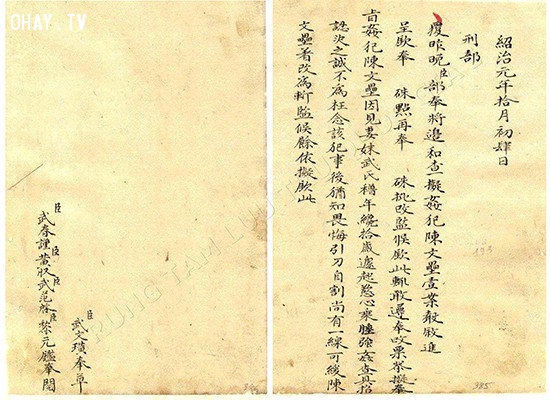 OHAY.TV
紹治元年拾月初肆日
刑部
覆昨晚臣部奉將邊和查擬姦犯陳文壘壹案敬敘進
呈欽奉 硃點再奉 硃批改監候欽此輒敢遵奉改票恭擬奉
旨姦犯陳文壘因見妻妹武氏穭年纔拾歲遽起慾心乘醉強姦查其拾
認次之誠不為枉念該犯事後猶知畏悔引刀自割尚有一線可緩陳
文壘著改為斬監候餘依擬欽此
臣武文 奉草
臣武春謹臣黃 臣武范啓臣黎元鑑奉閱
385